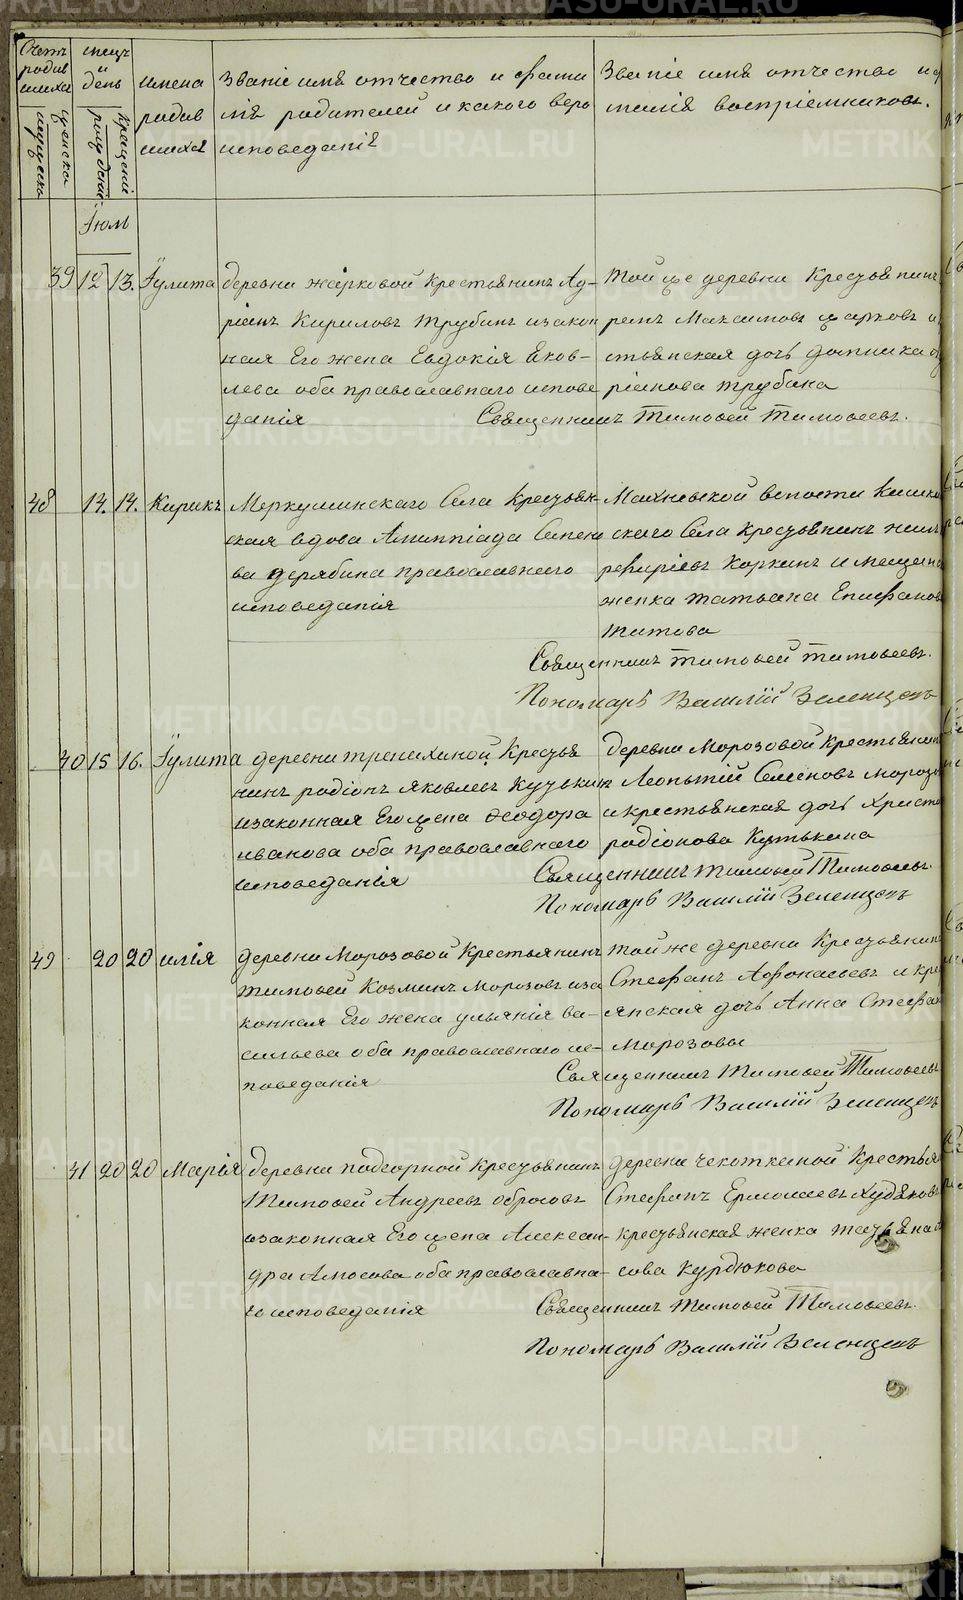 Счетъ родив шихся
мужеска
женска
месяцъ и день
рождения
крещения
имена родив шихся
Званіе имя отчество и фами
лія родителей и какого веро
исповеданія
Званіе имя отчество и ф
милія воспріемниковъ.
Іюль
39 12 13. Іулита
деревни жарковой крестьянинъ Ад-
ріанъ Кириловъ Трубинъ изакон
ная Его жена Евдокія Яков-
лева оба православнаго испове
данія
той же деревни Крестьянинъ
Максимовъ жарковъ и
стьянская дочь домника
ріанова трубина
Священникъ Тимофей Тимофеевъ.
48 14. 14. Кирикъ
Меркушинскаго Села крестьян-
ская вдова Алимпіада Семено
ва дерябина православнаго
исповеданія
Махневской волости
скаго Села крестьянинъ
Коркинъ и мещанс
женка татьяна Епифанова
титова
Священникъ Тимофей Тимофеевъ.
Пономарь Василій Зеленцовъ
40 15 16. Іулита
деревни трепихиной Крестья
нинъ родіонъ Яковлевъ Кузькин
изаконная Его жена Феодора
иванова оба православнаго
исповеданія
деревни Морозовой Крестьянин
Леонтій Семеновъ морозо
и крестьянская дочь Христи
родіонова Кутькина
Священникъ Тимофей Тимофеевъ.
Пономарь Василій Зеленцовъ
49 20 20 илія
деревни Морозовой Крестьянинъ
тимофей Козминъ Морозовъ иза
конная Его жена ульянія ва-
сильева оба православнаго ис-
поведанія
той же деревни Крестьянинъ
Стефанъ Афонасьевъ и кре
янская дочь Анна Стефа
Морозовы
Священникъ Тимофей Тимофеевъ
Пономарь Василій Зеленцовъ
41 20 20 Марія
деревни подгорной крестьянинъ
Тимофей Андреевъ обросовъ
изаконная Его жена Алексан-
дра Амосова оба православна-
го исповеданія
деревни чекоткиной Крестья
Стефанъ Ермолаевъ Худяковъ
крестьянская женка татьяна
сова Курдюкова
Священникъ Тимофей Тимофеевъ.
Пономарь Василій Зеленцовъ
METRIKI.GASO-URAL.RU